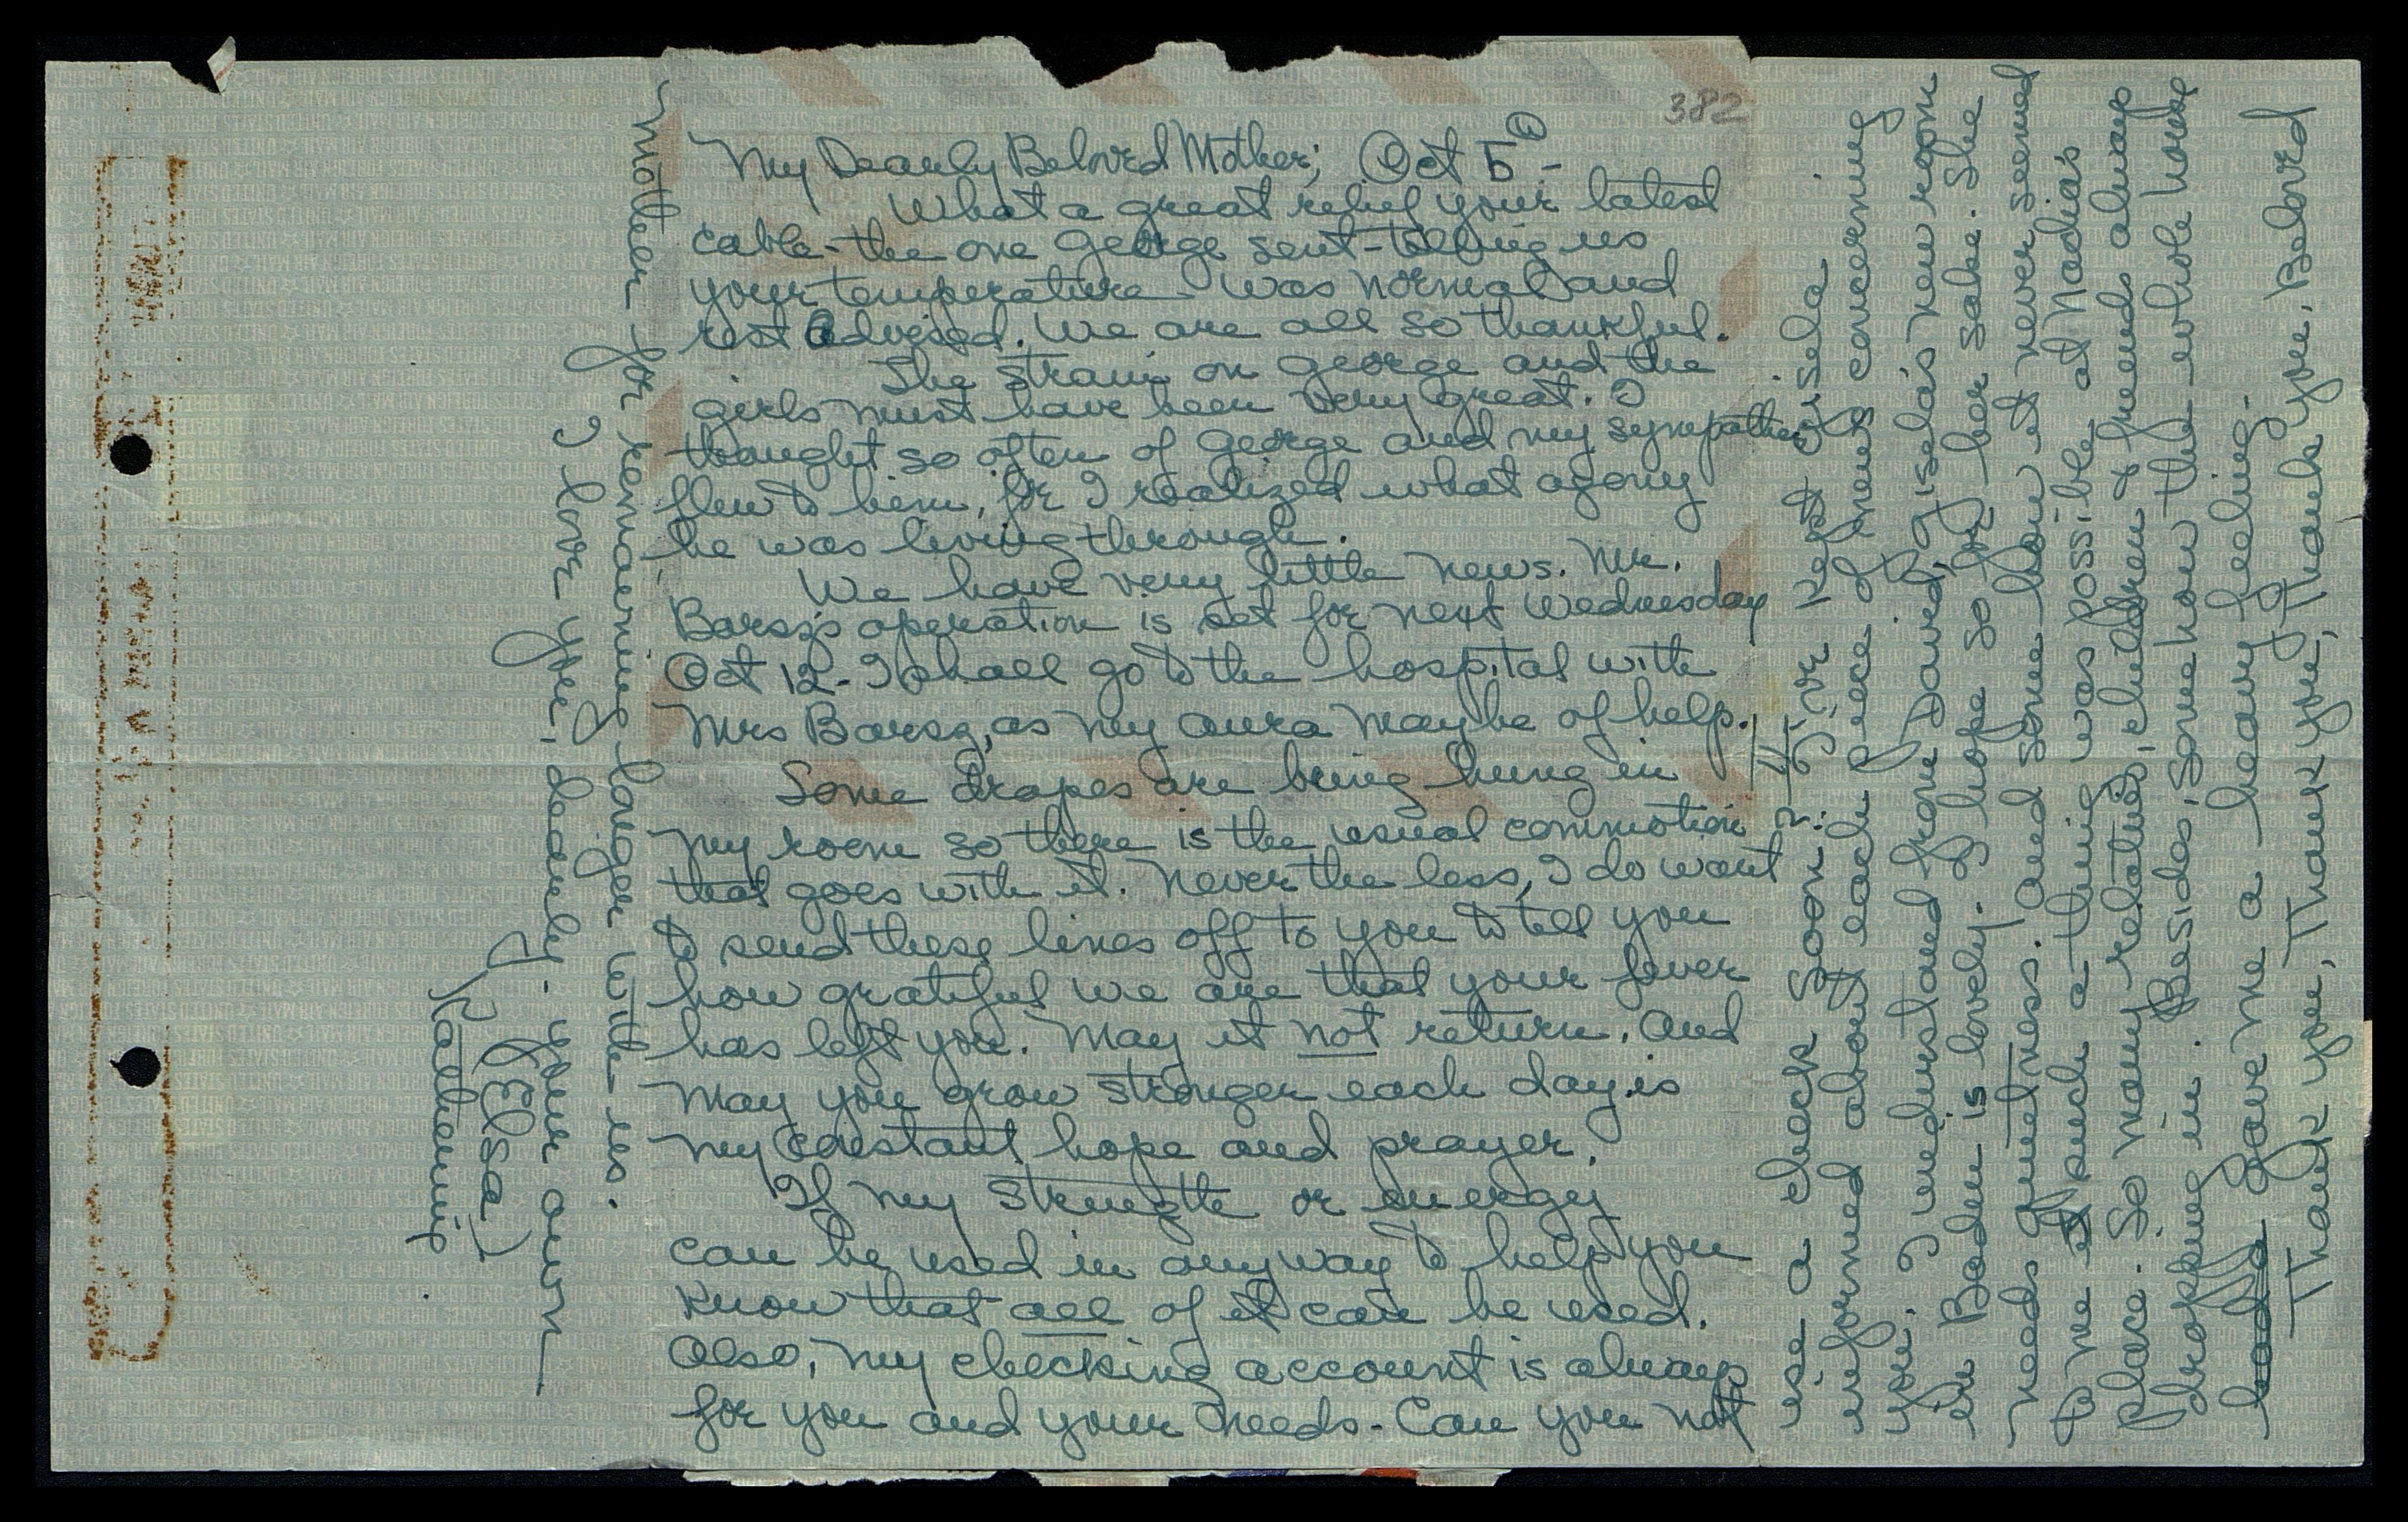 382
My Dearly Beloved Mother; Oct 5th -
What a great relief your latest
cable - the one George sent - telling us
your temperature was normal and
rest advised. We are all so thankful.
The strain on George and the
girls must have been very great. I
thought so often of George and my sympathy
flew to him, for I realized what agony
he was living through.
We have very little news. Mr.
Barsz's operation is set for next Wednesday
Oct 12 - I shall go to the hospital with
Mrs Barsz, as my aura may be of help.
Some drapes are being hung in
my room so there is the usual commotion
that goes with it. Never the less, I do want
to send these lines off to you to tell you
how grateful we are that your fever
has left you. May it not return. And
may you grow stronger each day is
my constant hope and prayer.
If my strength or energy
can be used in anyway to help you
know that all of it can be used.
Also, my checking account is always
for you and your needs - Can you not
use a check soon? Gisela
informed about each piece of news concerning
you. I understand from David, Gisela's new room
in Baden is lovely. I hope so for her sake. She
needs quietness. And some how it never seemed
to me such a thing was possible at Nadia's
place. So many relatives, children & friends always
dropping in. Besides, somehow the whole house
gave me a heavy feeling.
Thank you, Thank you, Thank you, Thank you, Beloved
Mother for remaining longer with us.
I love you - dearly - your own
(Elsa)
Katherine